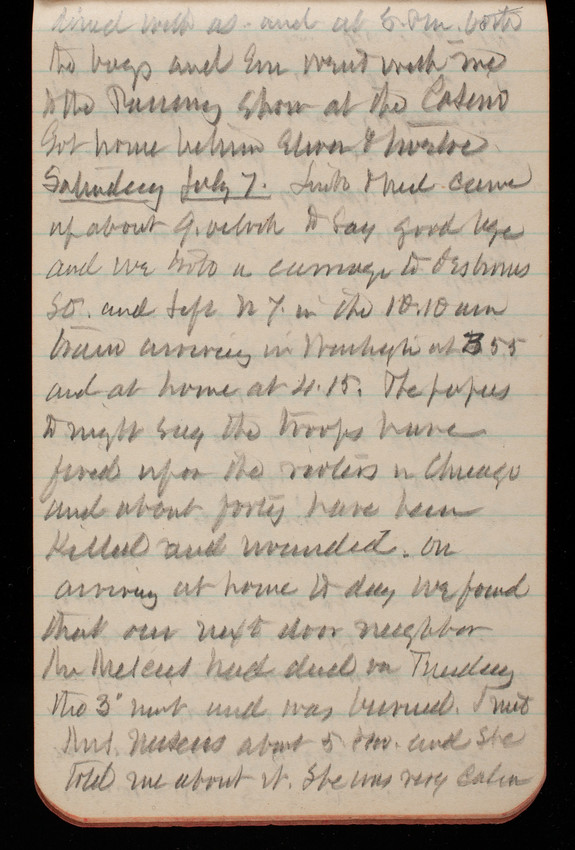 dined with us. and at 8. P.M. both
the boys and Em went with me
to the Passing Show at the Casino
Got home between Eleven & twelve
Saturday July 7. and Ned came
up about 9. oclock to say good bye
and we took a carriage to Desbrosses
St. and left N Y. in the 10.10 am
train arriving in Washington at 3 55
and at home at 4.15. The papers
to night say the troops have
fired upon the rioters in Chicago
and about forty have been
Killed and wounded. On
arriving at home to day we found
that our next door neighbor
Mr had died on Tuesday
the 3" inst and was buried. I met
Mrs. about 5 P.M. and she
told me about it. She was very calm